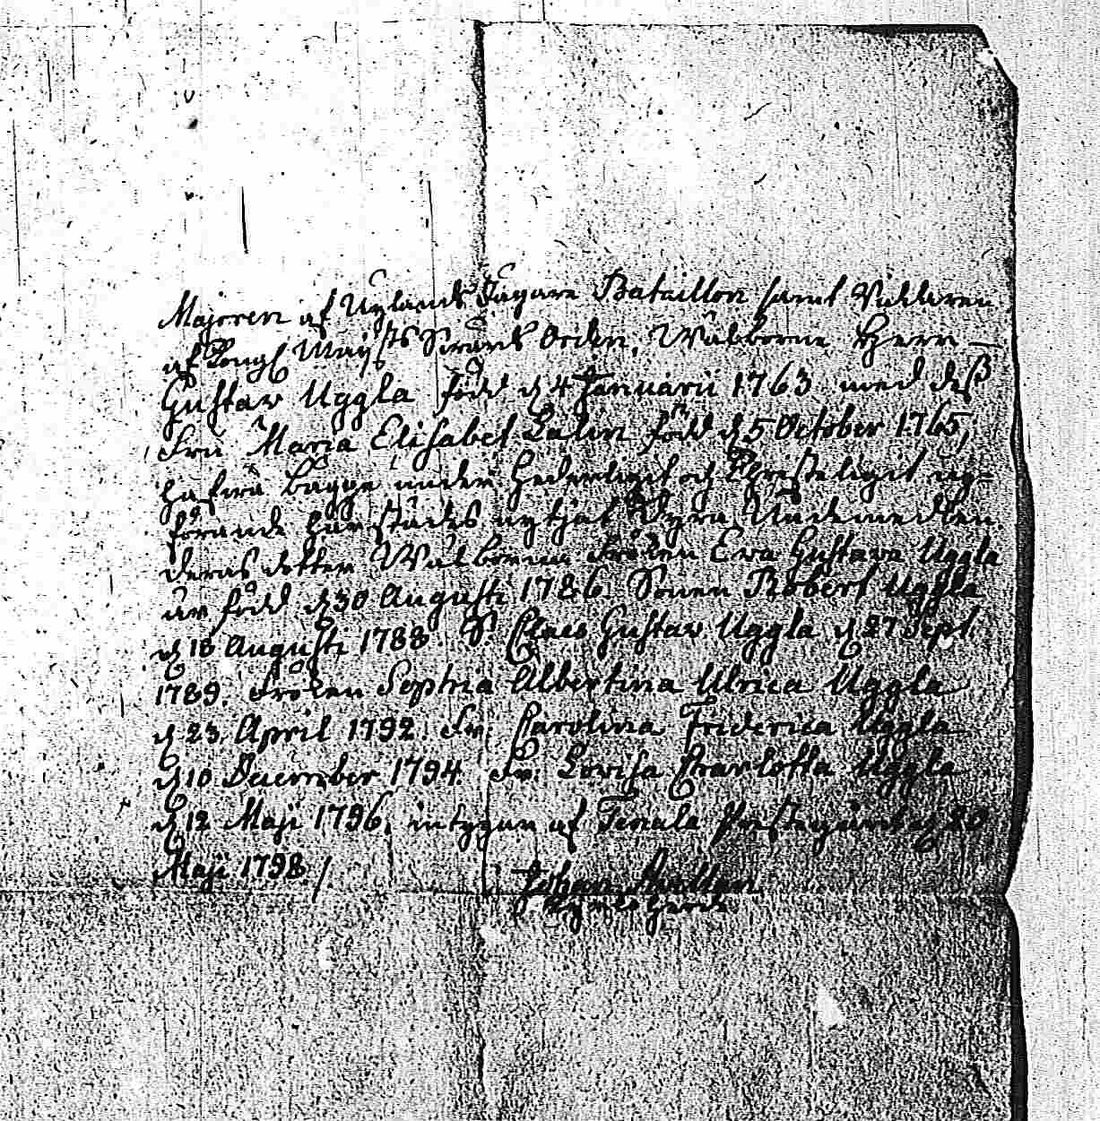 Majoren af Nylands Jägare Bataillon samt Riddaren
af Kongl Maijsts Swärds Orden, Wälborne Herr
Gustav Uggla född d 4 Januarii 1763 med dess
Fru Maria Elisabet Calin född d 5 October 1765,
hafwa bägge under hederligit och Christeligit up-
förande härstädes nytjat Dyra Nådemedlen.
deras dotter Wälborna Fröken Eva Gustava Uggla
är född d 30 Augusti 1786. Sonen Robert Uggla
d 18 Augusti 1788. S. Claes Gustav Uggla d 27 Sept.
1789. Fröken Sophia Albertina Ulrica Uggla
d 23 April 1792. Fr. Carolina Friderica Uggla
d 10 December 1794. Fr. Lovisa Charlotta Uggla
d 12 Maji 1796, intygar af Tenala Prästegård d 20
Maji 1798
Johan
Kyrkoherde